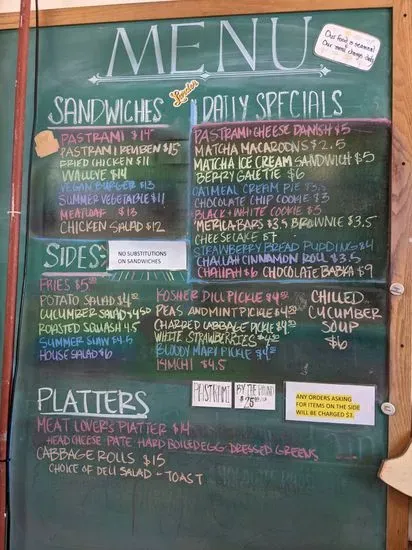 MENU
Our food is seasonal
Our menu changes daily
London
SANDWICHES
PASTRAMI $14
PASTRAMI REUBEN $15
FRIED CHICKEN $11
WALLEYE $14
VEGAN BURGER $13
SUMMER VEGETABLE $11
MEATLOAF $13
CHICKEN SALAD $12
DAILY SPECIALS
PASTRAMI CHEESE DANISH $5
MATCHA MACAROONS $2.5
MATCHA ICE CREAM SANDWICH $5
BERRY GALETTE $6
OATMEAL CREAM PIE $3.5
CHOCOLATE CHIP COOKIE $3
BLACK + WHITE COOKIE $5
MERICA BARS $3.5 BROWNIE $3.5
CHEESECAKE $7
STRAWBERRY BREAD PUDDING $4
CHALLAH CINNAMON ROLL $3.5
CHALLAH $6 CHOCOLATE BABKA $9
SIDES:
NO SUBSTITUTIONS
ON SANDWICHES
FRIES $5
POTATO SALAD $4.50
CUCUMBER SALAD $4.50
ROASTED SQUASH 4.5
SUMMER SLAW $4.5
HOUSE SALAD $6
KOSHER DILL PICKLE $4.50
PEAS AND MINT PICKLE $4.50
CHARRED CABBAGE PICKLE $4.50
WHITE STRAWBERRIES $4.50
BLOODY MARY PICKLE $4.50
KIMCHI $4.5
CHILLED
CUCUMBER
SOUP
$6
PASTRAMI BY THE POUND
$25
ANY ORDERS ASKING
FOR ITEMS ON THE SIDE
WILL BE CHARGED $3.
PLATTERS
MEAT LOVERS PLATTER $14
HEAD CHEESE PATE HARD BOILED EGG DRESSED GREENS
CABBAGE ROLLS $15
CHOICE OF DELI SALAD - TOAST